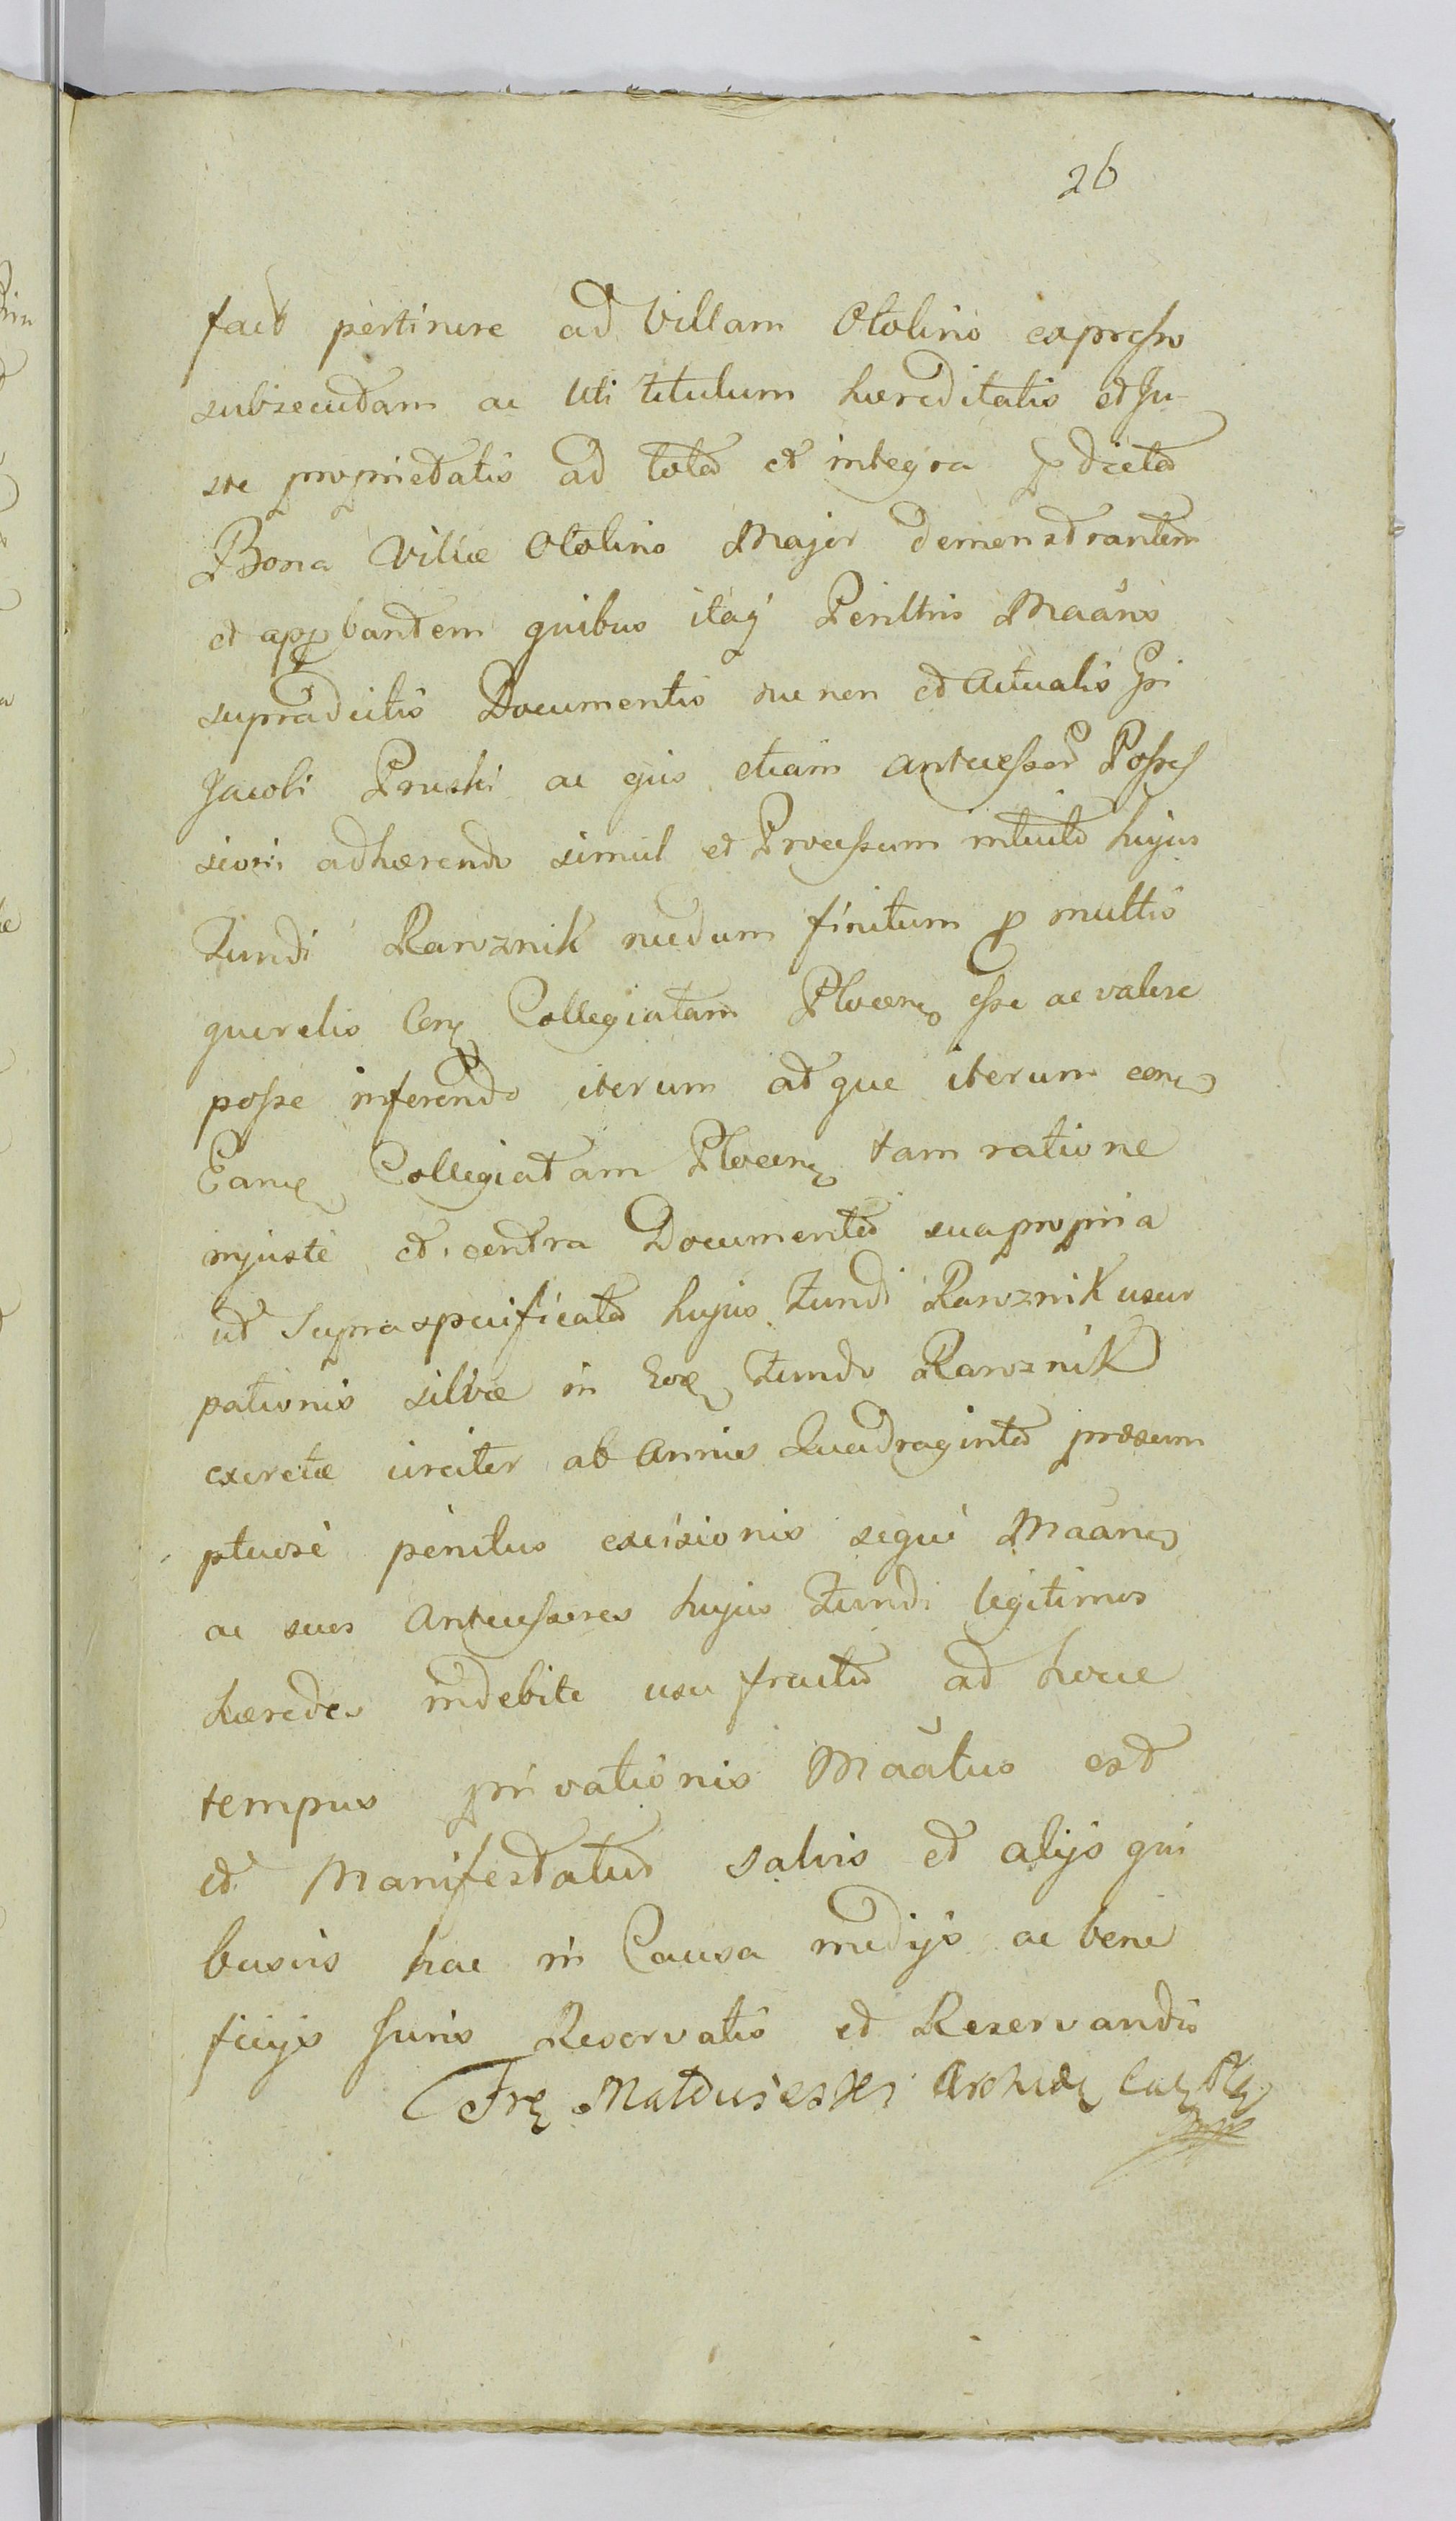 26
facit pertinere ad Villam Otolino expresso
subsecutam ac Uti titulum hæreditatis et Ju-
re proprietatis ad tota et integra p dicta
Bona Villæ Otolino Major demonstrantem
et appbantem quibus itaq Perlltris Maãns
supradictis Documentis nec non et Actualis Gsi
Jacobi Pruski ac ejus etiam Antecessor Posses
sioris adhærendo simul et Processum intuitu hujus
Fundi Rawznik nedum finitum p multis
querelis Con Collegiatam Plocen esse ac valere
posse inferendo iterum atque iterum con
Eam Collegiatam Plocen tam ratione
injuste et contra Documenta sua propria
ut Supra specificata hujus Fundi Rawznik usur
pationis silvæ in Eoe Fundo Rawznik
excretæ circiter ab Annis Quadraginta præsum
ptuose penitus excisionis seque Maãn
ac suos Antecessores hujus Fundi legitimos
hæredes indebite usu fructu ad hocce
tempus privationis Maãtus est
et Manifestatus salvis et alijs qui
busvis hac in Causa medijs ac bene
ficijs Juris Reservatis et Reservandis
Fr Matusieski Archid Cat Pl
mp